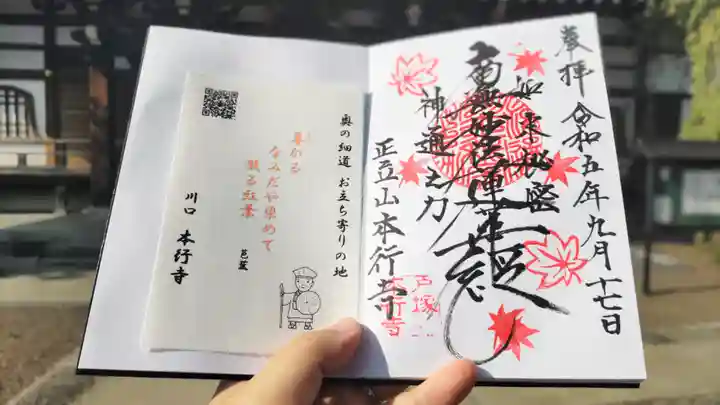 奉拝 令和五年九月十七日
如来秘密
南無妙法蓮華経
神通之力
正立山本行寺
戸塚
本行寺
奥の細道 お立ち寄りの地
暮かゝる
なみだや染めて
散る紅葉
芭蕉
川口 本行寺